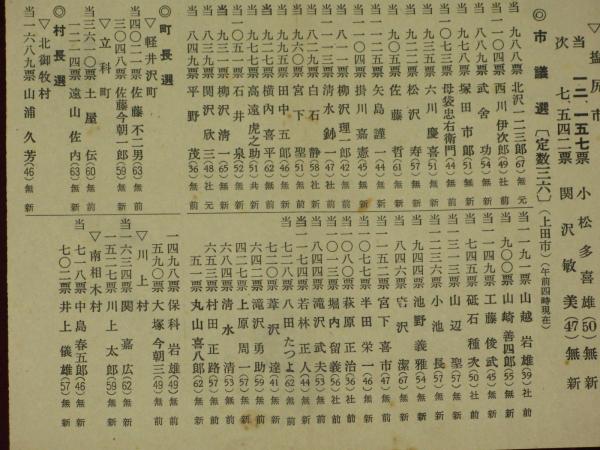 ▽塩尻市
当 一二、一五七票 小松多喜雄(50)無新
次 七、五四二票 関沢敏美(47)無新
◎市議選〔定数三六〕(上田市)(午前四時現在)
当 九八八票 北沢一二三郎(67)無元
当一一〇四票 西川伊次郎(49)社前
当 八八九票 武舎功(54)無新
当 八七八票 塚田市郎(51)無新
当一一〇三票 母袋忠右衛門(44)無前
当 九三五票 六川慶喜(51)無前
当 九二七票 松沢寿(57)無新
当一〇五五票 佐藤哲(61)無新
当一一二五票 矢島謹一(44)無前
当一〇四四票 掛川嘉憲(45)無新
当 八一一票 柳沢理一郎(42)無前
当一〇一一票 清水 一(47)社前
当 八二九票 白石静(58)社前
当 九六〇票 宮下聖(51)無前
当 九九五票 田中五郎(46)無新
当 九二七票 横内喜平(62)無前
当 九七七票 高遠虎之助(51)共新
当一〇五一票 石井泉(52)無新
当 九三一票 柳沢清一(65)無新
当 八四九票 関沢欣三(48)社元
当 八三九票 平野茂(36)無前
当一一九一票 山越岩雄(39)社前
当 九〇〇票 山崎善四郎(55)無新
当一一四九票 工藤俊武(45)無新
当 七四五票 砥石種次(50)社前
当一三一三票 山辺聖(57)無前
当一二三三票 小池長(57)無前
当 九四四票 池野義雄(54)無新
当 八四六票 宮沢潔(67)無新
当一一五二票 宮下喜市(47)無前
当一〇七七票 半田栄一(46)無前
当一〇八〇票 萩原正治(36)社前
当一〇一三票 堀内留義(56)社前
当一一七一票 若林正人(44)無新
当 八四四票 滝沢武夫(53)無新
当 七二八票 八田たつよ(62)無前
七二〇票 葦沢達(41)無新
六四二票 滝沢勇助(59)無新
四二七票 上原周一(57)無新
六八四票 清水清(53)無前
六五三票 村田正路(57)無前
六五一票 丸山喜八郎(62)無新
◎町長選
▽軽井沢町
当四〇二一票 佐藤不二男(63)無前
三〇四八票 佐藤今朝一郎(59)無新
▽立科町
当三六一〇票 土屋伝(60)無前
一二一四票 遠山佐内(63)無新
◎村長選
▽北御牧村
当一六八九票 山浦久芳(46)無新
一四九八票 保科岩雄(49)無前
五九〇票 大塚今朝三(49)無新
▽川上村
当一六三四票 関嘉広(62)無前
一五二七票 川上太郎(59)無新
▽南相木村
当 七一八票 中島春五郎(46)無新
七〇二票 井上儀雄(57)無前